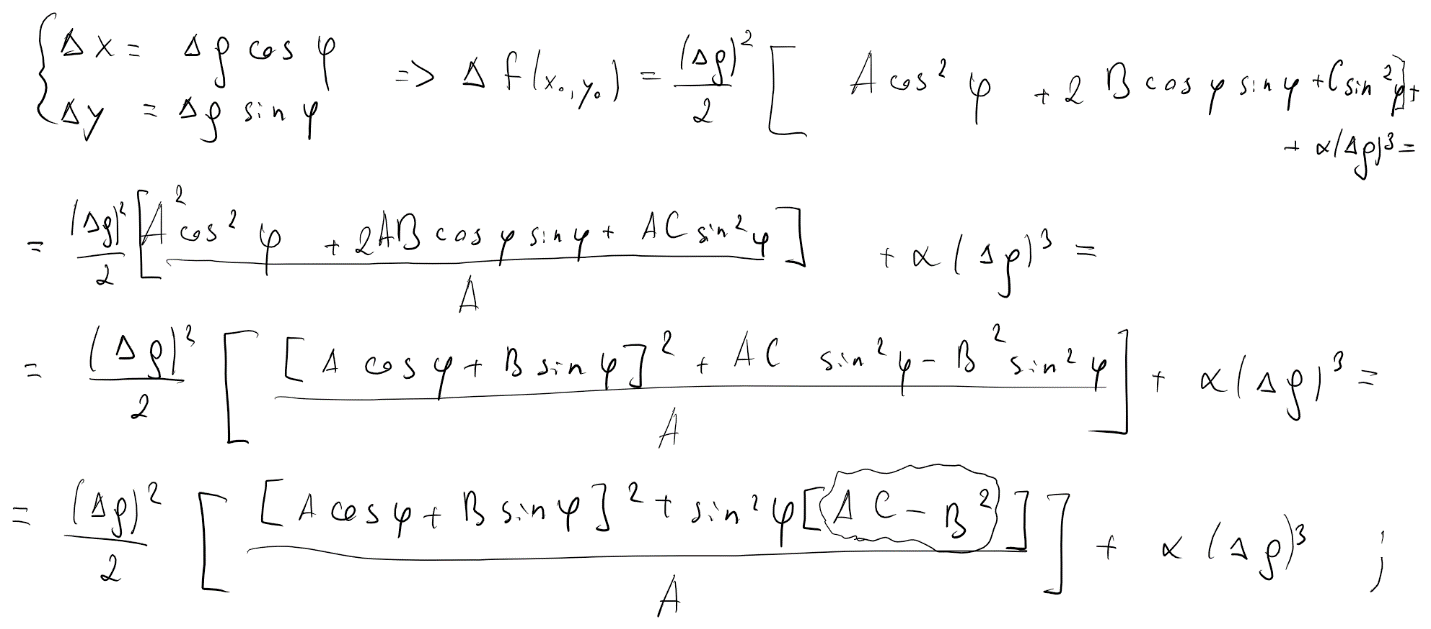 { Δx = Δρ cos φ
Δy = Δρ sin φ
=> Δ f(x₀, y₀) = (Δρ)²/2 [ A cos² φ + 2 B cos φ sin φ + C sin² φ] +
+ α(Δρ)³ =
= (Δρ)²/2 [ (A² cos² φ + 2AB cos φ sin φ + AC sin² φ)/A ] + α(Δρ)³ =
= (Δρ)²/2 [ ([A cos φ + B sin φ]² + AC sin² φ - B² sin² φ)/A ] + α(Δρ)³ =
= (Δρ)²/2 [ ([A cos φ + B sin φ]² + sin² φ[AC - B²])/A ] + α(Δρ)³ ;